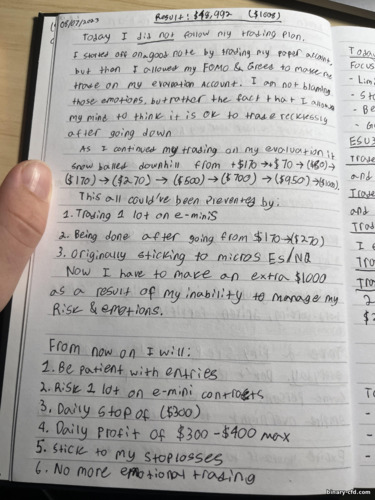 08/07/2023
Result: $48,992 ($1008)
Today I did not follow my trading plan.
I started off on a good note by trading my paper account,
but than I allowed my FOMO & Greed to make me
trade on my evaluation account. I am not blaming
those emotions, but rather the fact that I allowed
my mind to think it is ok to trade recklessly
after going down
As I continued my trading on my evaluation it
snow balled downhill from +$170 → +$70 → ($80) →
($170) → ($270) → ($500) → ($700) → ($950) →
This all could've been prevented by:
1. Trading 1 lot on e-minis
2. Being done after going from $170 → ($270)
3. Originally sticking to micros ES/NQ
Now I have to make an extra $1000
as a result of my inability to manage my
Risk & emotions.
From now on I will:
1. Be patient with entries
2. Risk 1 lot on e-mini contracts
3. Daily stop of ($300)
4. Daily Profit of $300-$400 max
5. Stick to my stoplosses
6. No more emotional trading
binary-cfd.com